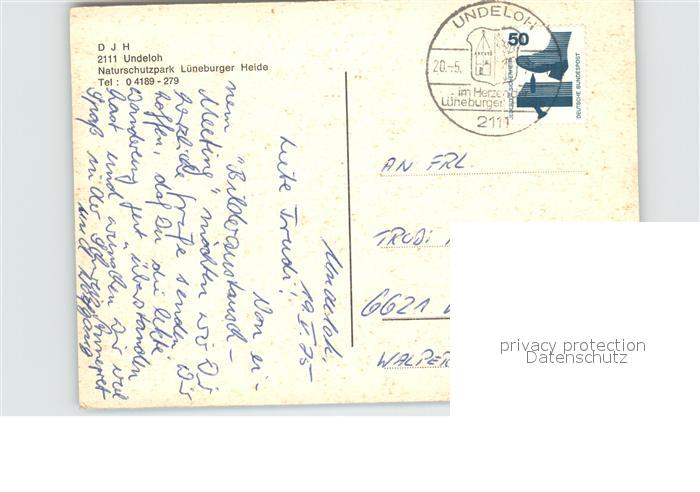 D J H
2111 Undeloh
Naturschutzpark Lüneburger Heide
Tel : 0 4189 - 279
UNDELOH
20.-5.
im Herzen
Lüneburger
2111
50
JEDERZEIT SICHERHEIT
DEUTSCHE BUNDESPOST
Undeloh,
19.V.75
Liebe Trudi!
Von ei-
nem "Bilderaustausch-
Meeting" möchten wir Dir
herzliche Grüße senden. Wir
hoffen, daß Du die letzte
Wanderung gut überstanden
hast und wünschen Dir viel
Spaß in der
Annegret
und Wolfgang
AN FRL.
TRUDI
6621
WALPER
privacy protection
Datenschutz